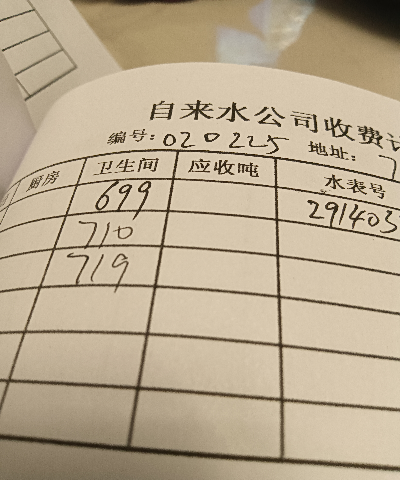 自来水公司收费
编号: 020225 地址: 7
厨房 卫生间 应收吨 水表号
699 291403
710
719